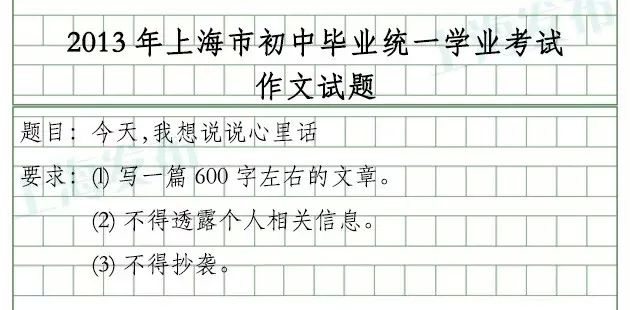 2013年上海市初中毕业统一学业考试
作文试题
题目：今天，我想说说心里话
要求：(1) 写一篇600字左右的文章。
(2) 不得透露个人相关信息。
(3) 不得抄袭。
上海发布
上海发布